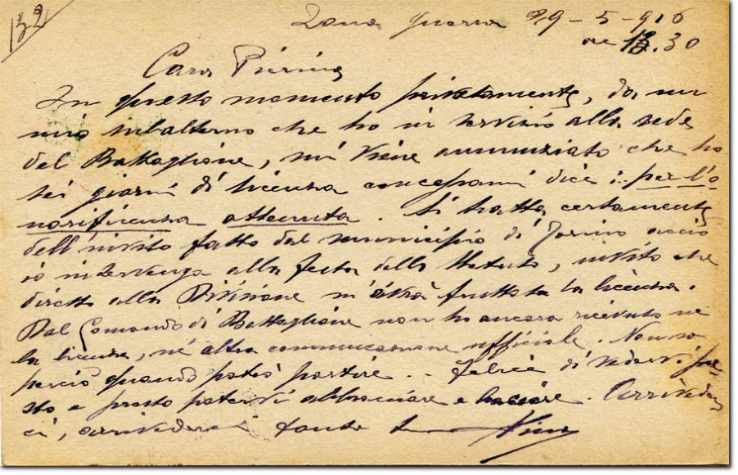 132
Zona guerra 29-5-916
ore 13.30
Cara Pierina
In questo momento privatamente, da un
mio subalterno che ho in servizio alla sede
del Battaglione, mi viene annunziato che ho
sei giorni di licenza concessami dice : per l'o-
norificenza ottenuta. Si tratta certamente
dell'invito fatto dal municipio di Torino acciò
io intervenga alla festa dello Statuto, invito che
diretto alla Divisione m'avrà fruttata la licenza.
Dal Comando di Battaglione non ho ancora ricevuto nè
la licenza, nè altra comunicazione ufficiale. Non so
perciò quando potrò partire .. Felice di vedervi pre-
sto e presto potervi abbracciare e baciare. Arriveder-
ci, arrivederci tante